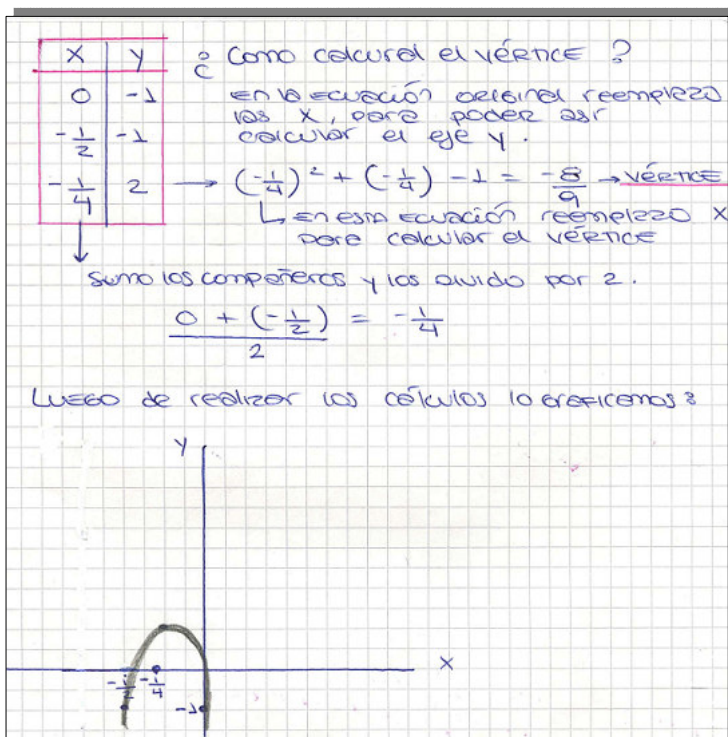 x | y
0 | -1
-1/2 | -1
-1/4 | 2
¿ Como calcural el vértice ?
en la ecuación original reemplazo
las x, para poder así
calcular el eje y.
→ (-1/4)² + (-1/4) - 1 = -8/9 → vértice
↳ en esta ecuación reemplazo x
para calcular el vértice
↓
sumo los compañeros y los divido por 2.
0 + (-1/2) / 2 = -1/4
Luego de realizar los cálculos lo graficamos:
y
x
-1/2 -1/4
-1